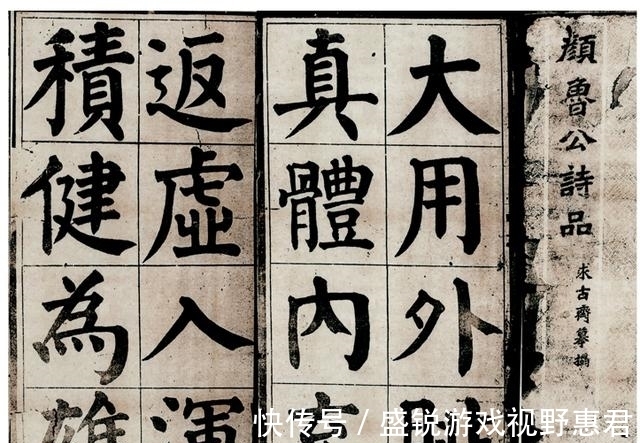 顏魯公詩品
求古齋摹搨
大用外
真體內
返虛入渾
積健為雄
快传号/盛锐游戏视野惠君